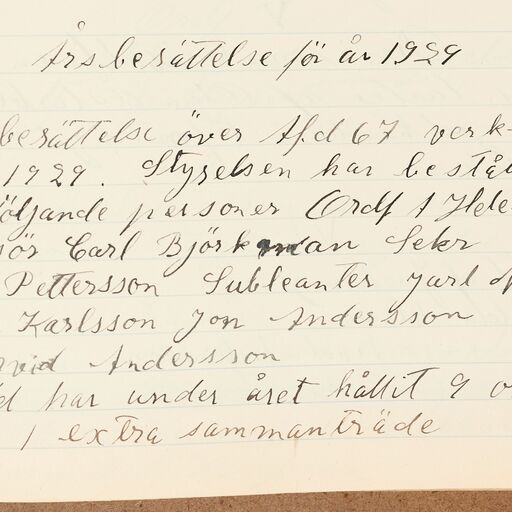 Årsberättelse för år 1929
berättelse över Afd 67 verk-
1929. Styrelsen har bestå
följande personer Ordf A Hele
ör Carl Björkman Sekr
Pettersson Subleanter Jarl
Karlsson Jon Andersson
rvid Andersson
d har under året hållit 9 o
1 extra sammanträde